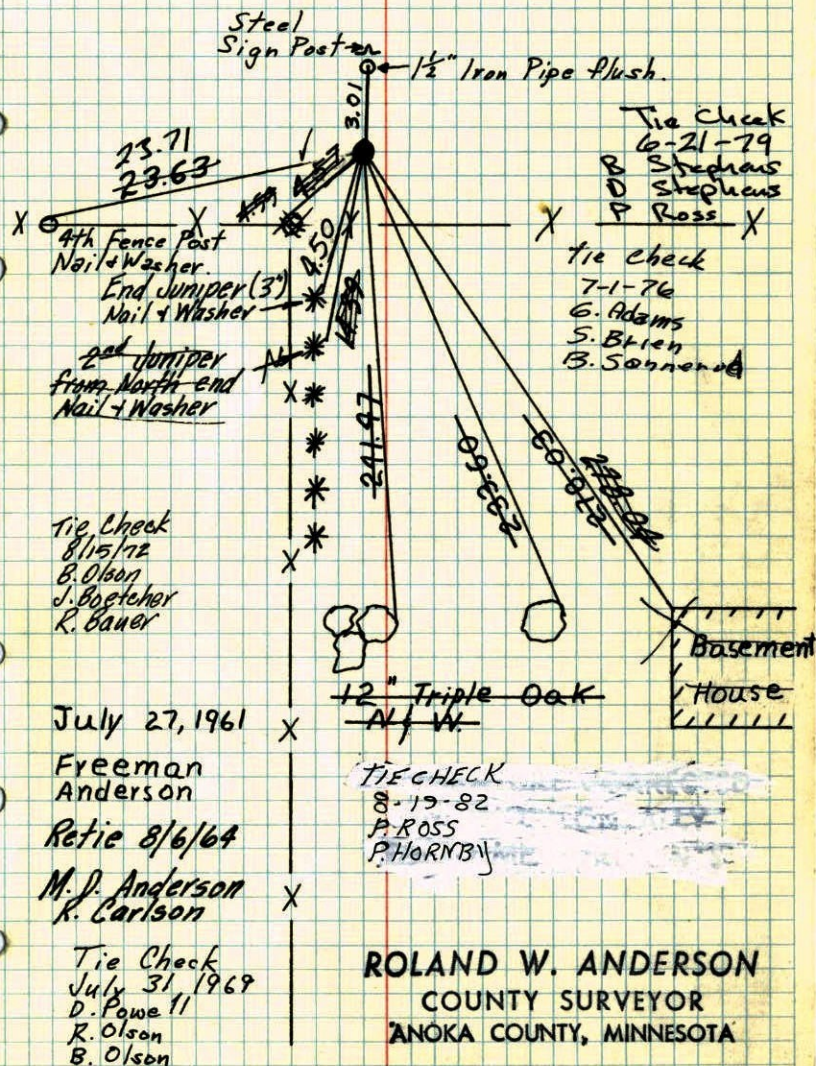 Steel
Sign Post
1 1/2" Iron Pipe flush.
3.01
Tie Check
6-21-79
B Stephens
D Stephens
P Ross
23.71
23.63
4.57
4.59
X X X X X
4th Fence Post
Nail & Washer.
4.50
End Juniper (3")
Nail & Washer
4.39
2nd Juniper
from North end
Nail & Washer
Tie Check
7-1-76
G. Adams
S. Brien
B. Sonnerud
241.97
233.60
218.03
Tie Check
8/15/72
B. Olson
J. Boetcher
R. Bauer
Basement
House
12" Triple Oak
N & W.
July 27, 1961
Freeman
Anderson
Retie 8/6/64
M. D. Anderson
R. Carlson
TIE CHECK
8-19-82
P. ROSS
P. HORNBY
Tie Check
July 31, 1969
D. Powell
R. Olson
B. Olson
ROLAND W. ANDERSON
COUNTY SURVEYOR
ANOKA COUNTY, MINNESOTA